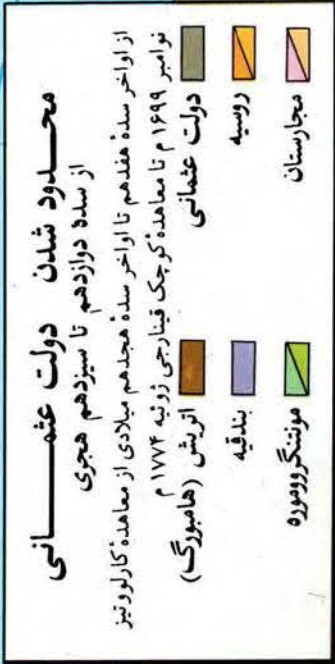 محدود شدن دولت عثمانی
از سده دوازدهم تا سیزدهم هجری
از اواخر سدهٔ هفدهم تا اواخر سدهٔ هجدهم میلادی از معاهدهٔ کارلوونیز
نوامبر ۱۶۹۹ م تا معاهدهٔ کوچک قینارجی ژوئیه ۱۷۷۴ م
دولت عثمانی
اتریش (هامبورگ)
روسیه
بندقیه
مجارستان
مونتنگروو موره